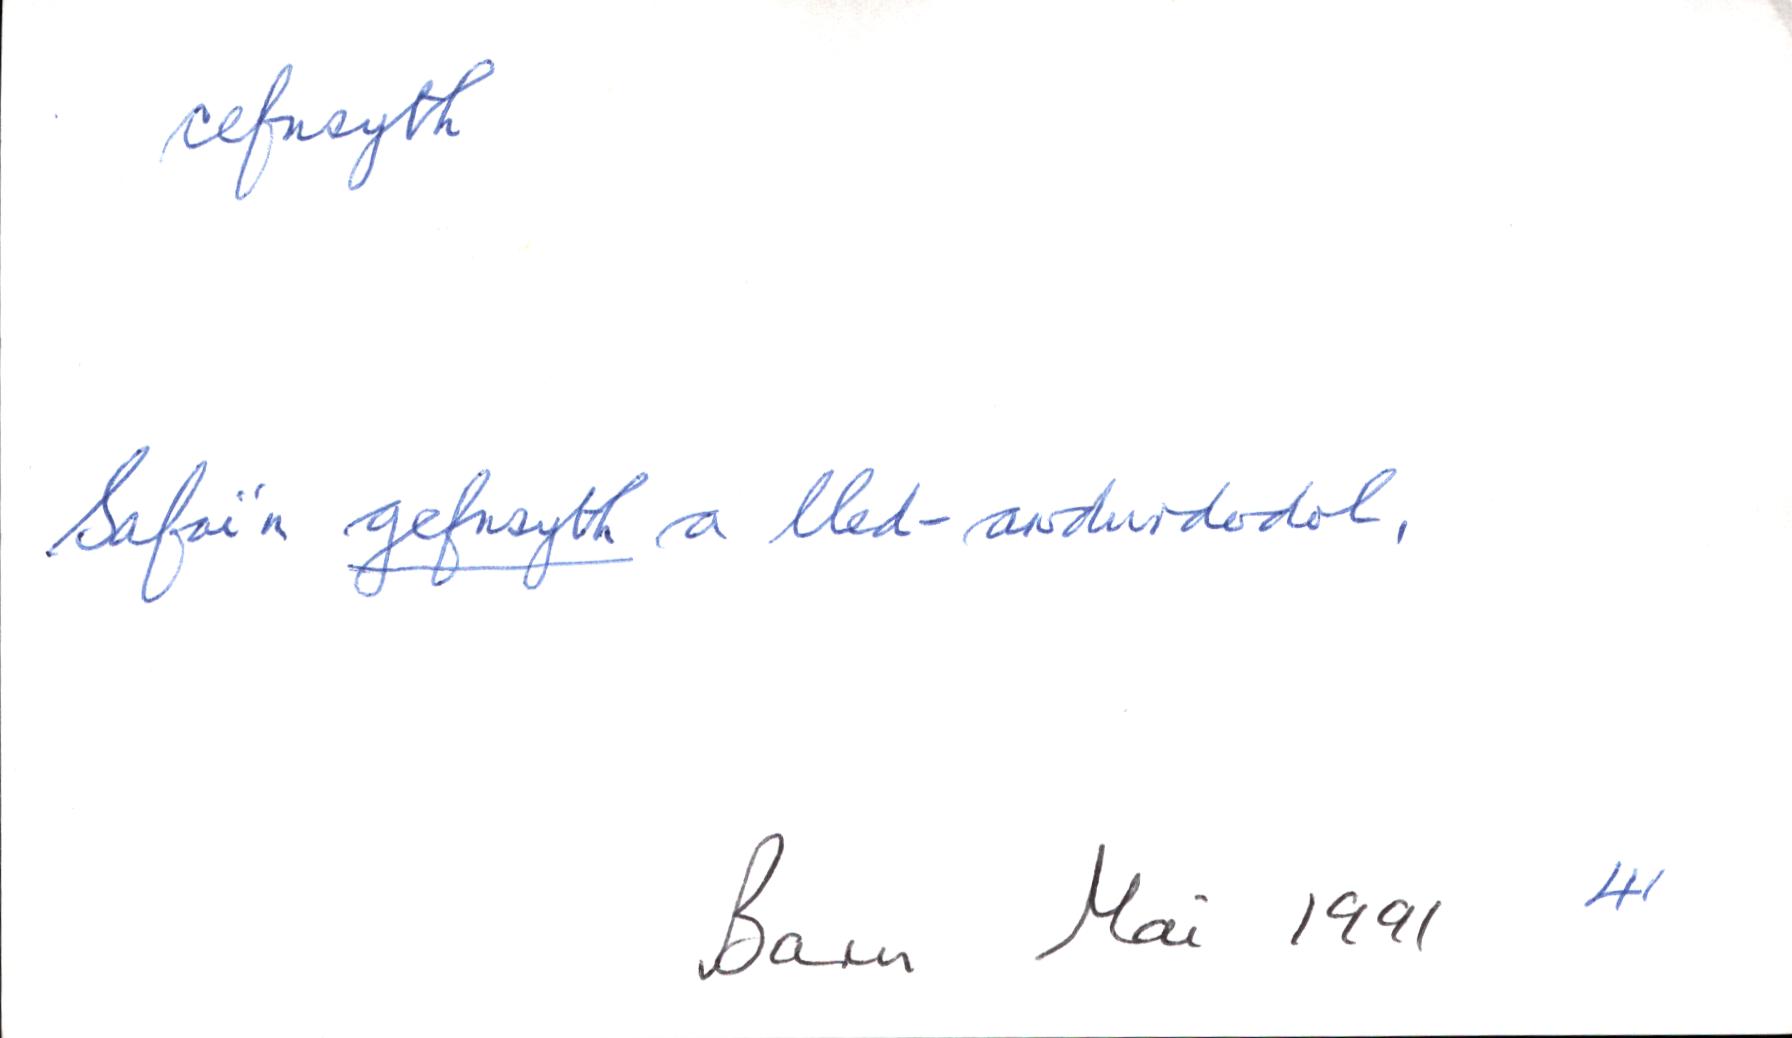 cefnsyth
Safai'n gefnsyth a lled-awdurdodol.
Barn Mai 1991 41